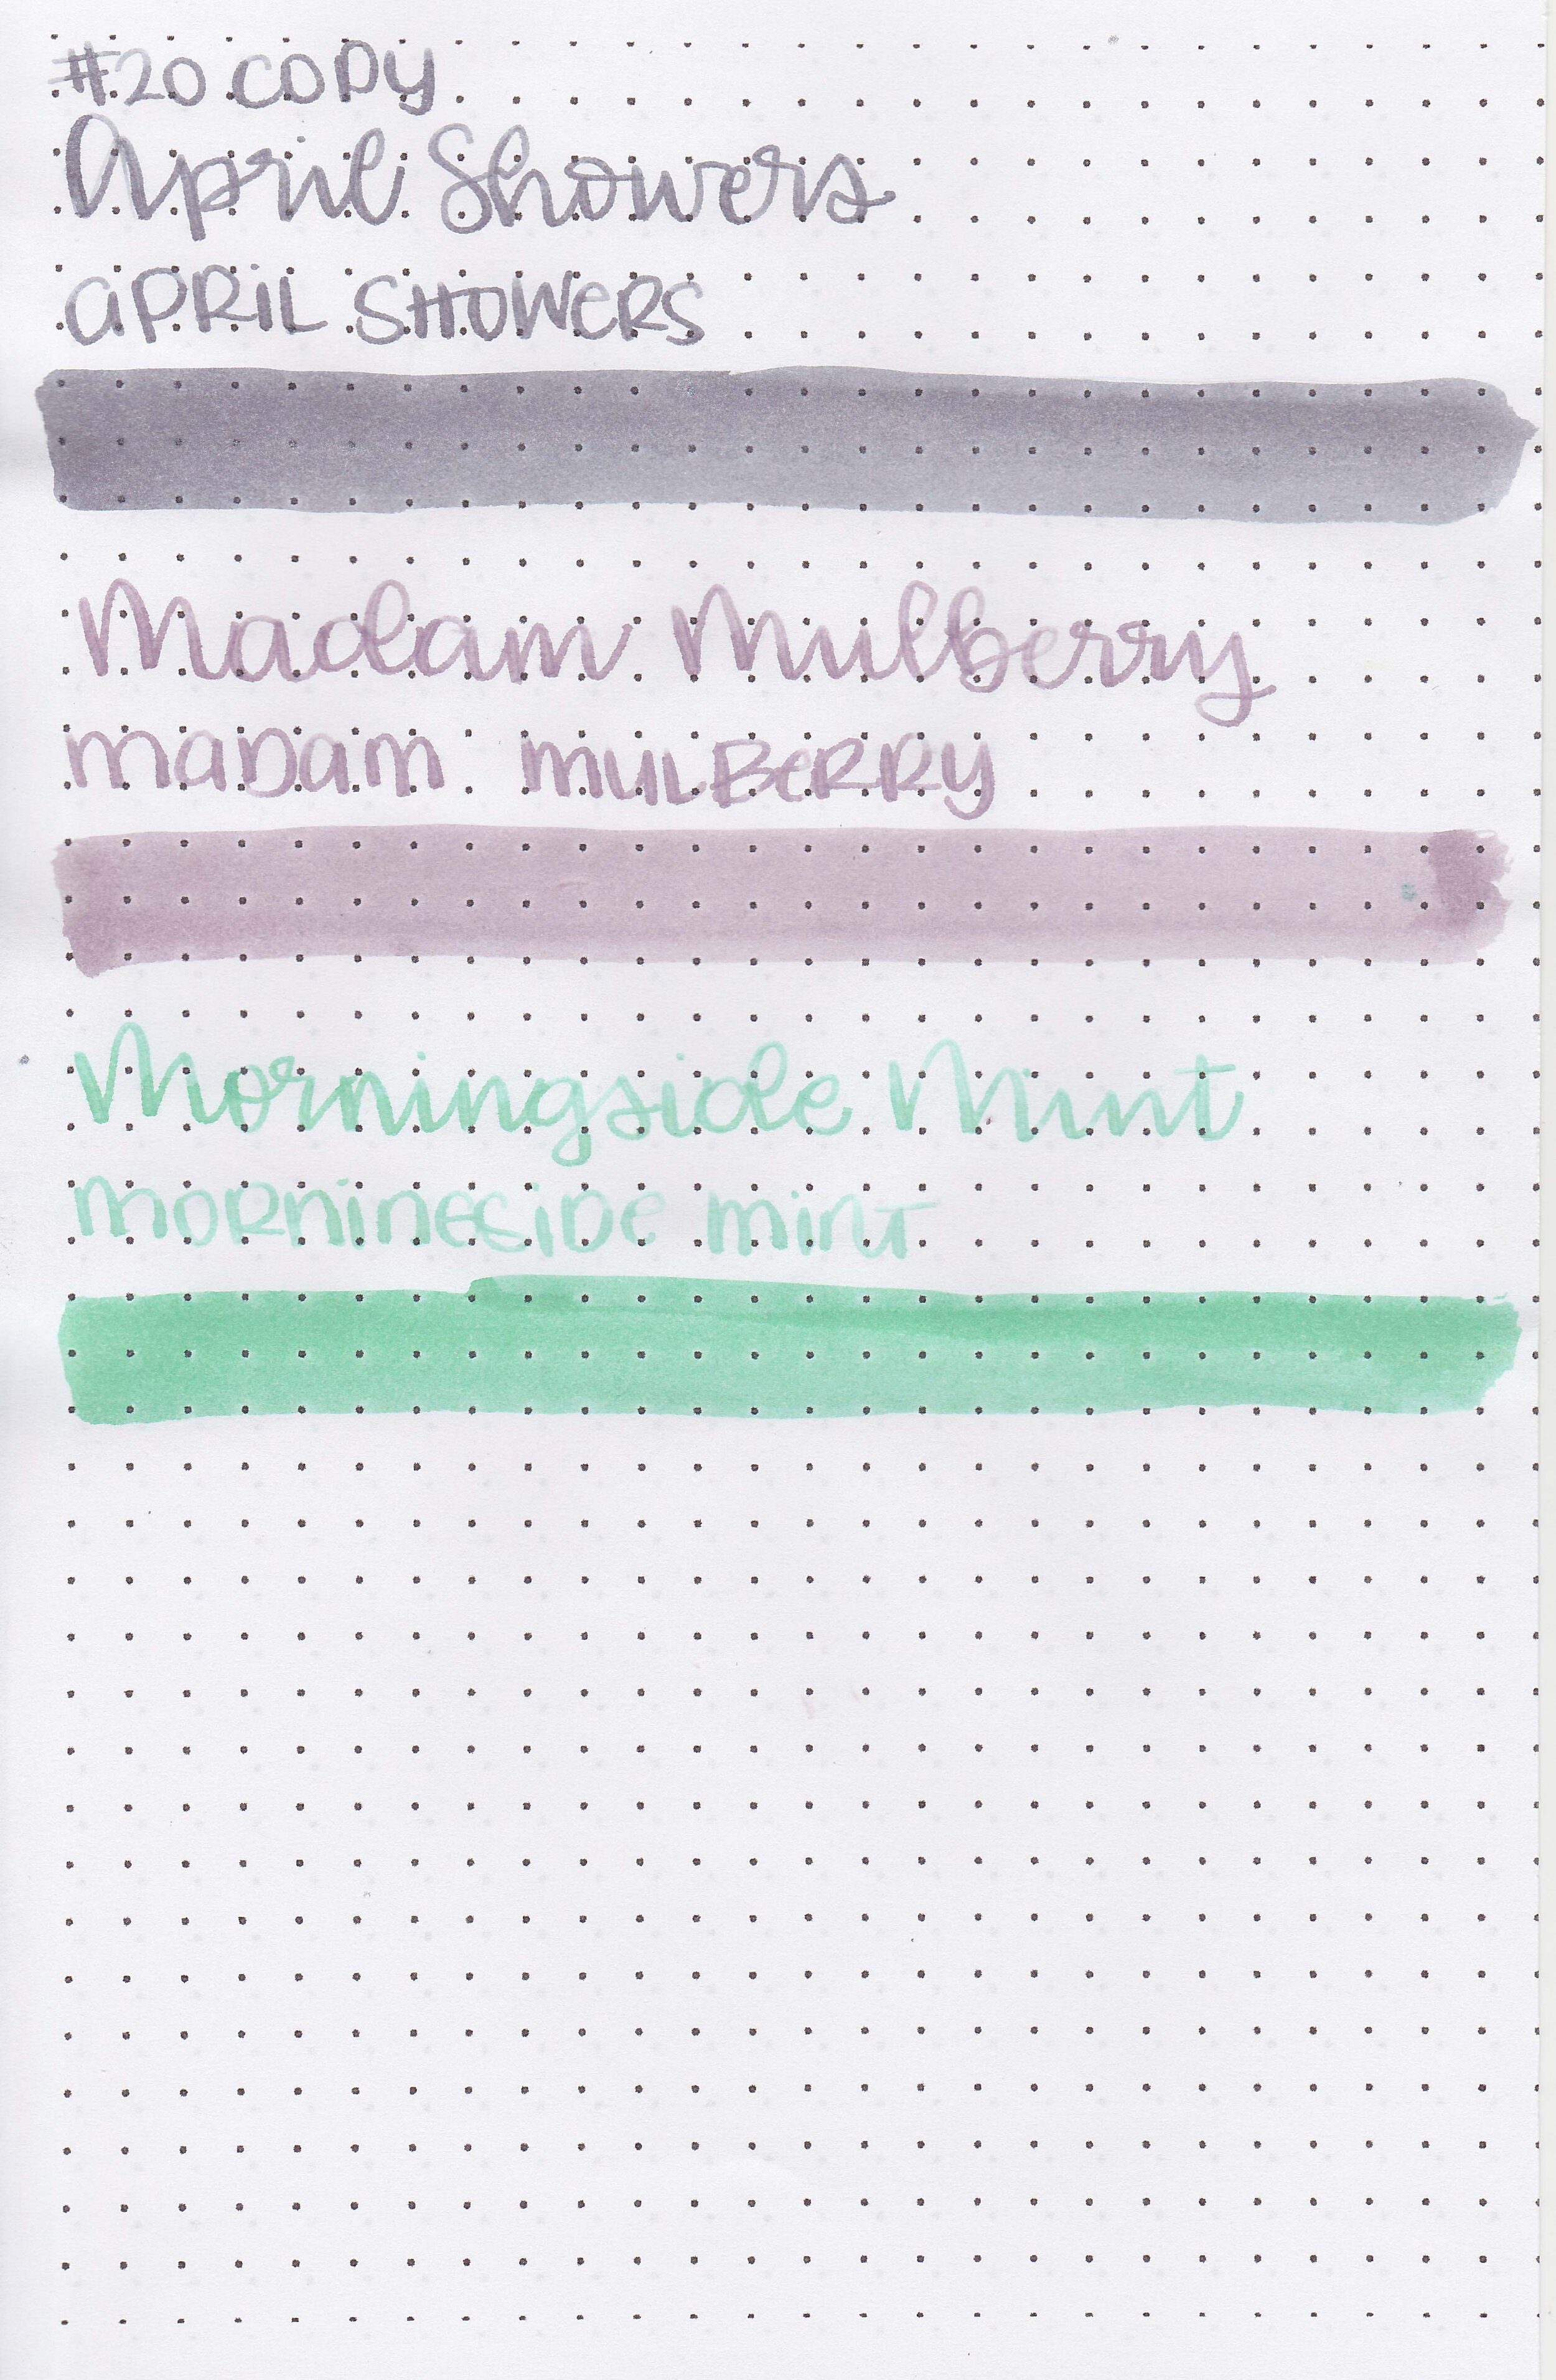 #20 COPY
April Showers
APRIL SHOWERS
Madam Mulberry
MADAM MULBERRY
Morningside Mint
MORNINGSIDE MINT